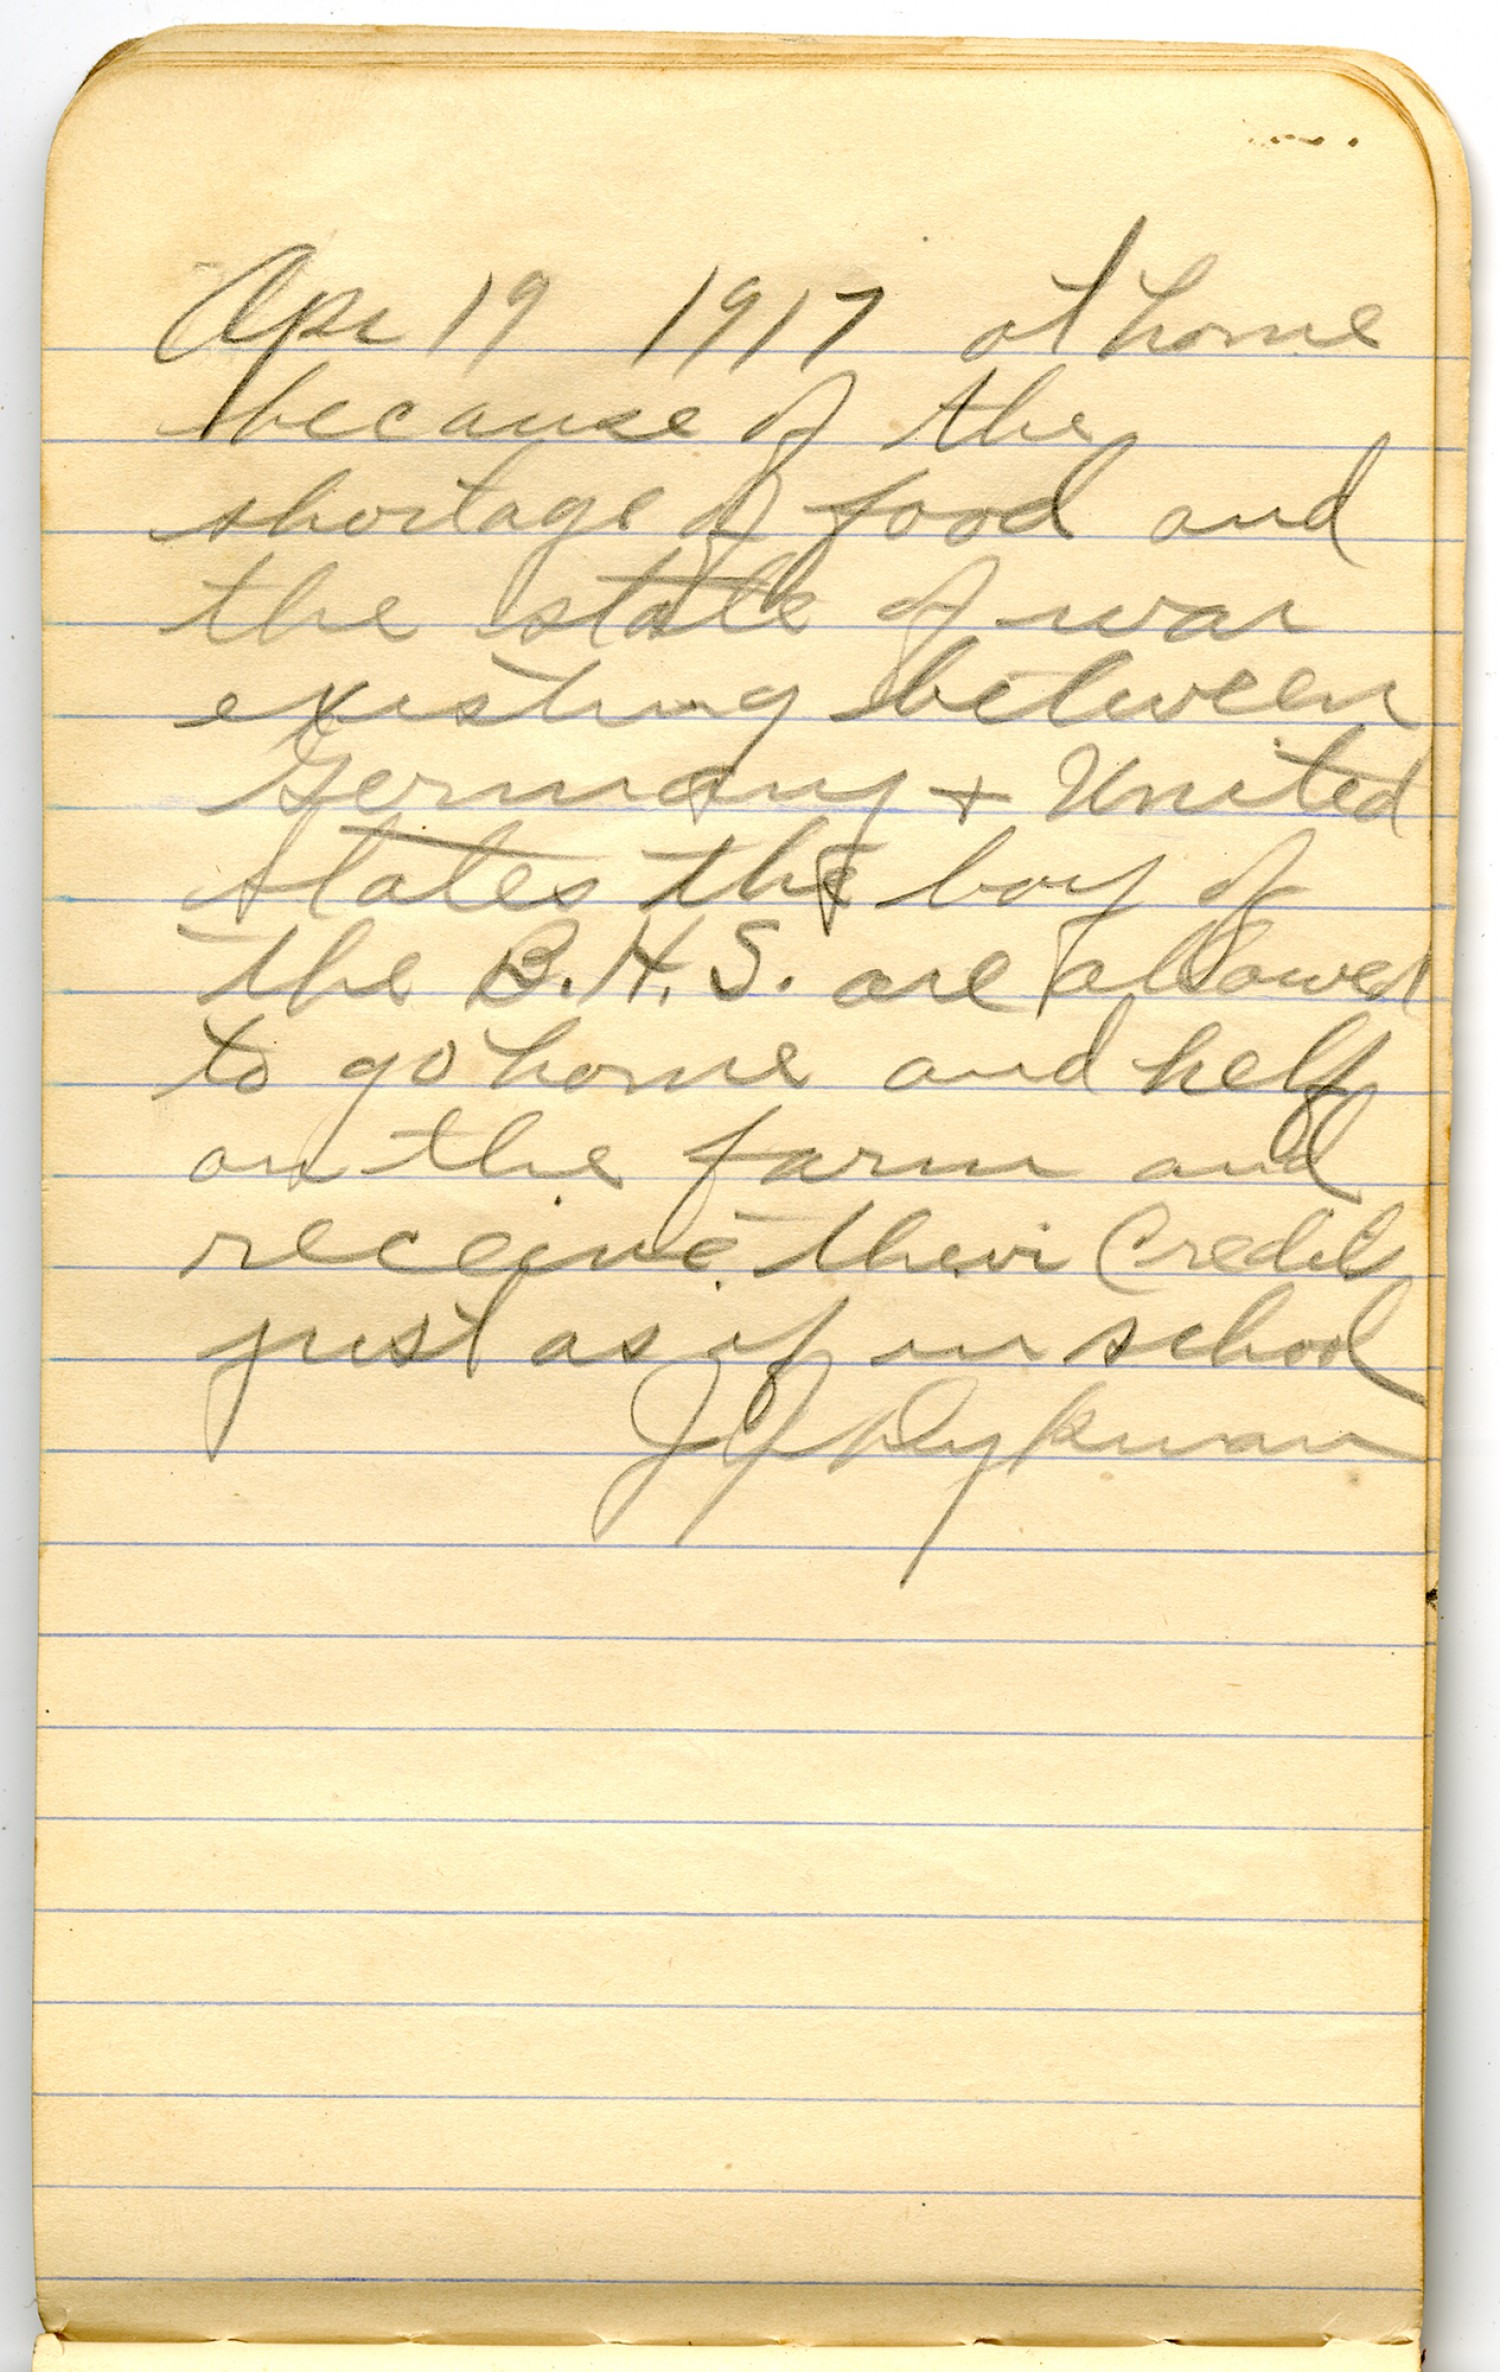 Apr 19 1917 at home
because of the
shortage of food and
the state of war
existing between
Germany + United
States the boy of
the B.H.S. are allowed
to go home and help
on the farm and
receive their Credit
just as if in school
J J Dykman